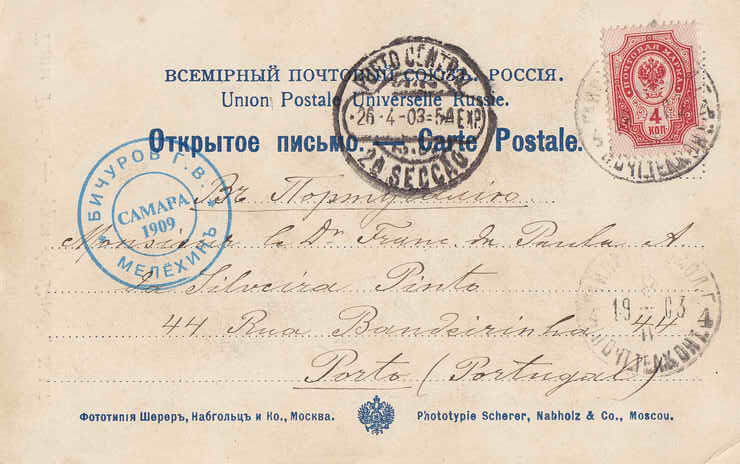 ВСЕМІРНЫЙ ПОЧТОВЫЙ СОЮЗЪ. РОССІЯ.
Union Postale Universelle Russie.
Открытое письмо. — Carte Postale.
ПОЧТОВАЯ МАРКА
4
КОП
PORTO CENTRAL
26-4-03=5A EXP.
2A SECÇÃO
БИЧУРОВ Г.В.
САМАРА
1909
МЕЛЁХИНЪ
Въ Португалію
Monsieur le Dr Franc. de Paula A.
da Silveira Pinto
44 Rua Bandeirinha 44
Porto (Portugal)
19 03
4
Фототипія Шереръ, Набгольцъ и Ко., Москва.
Phototypie Scherer, Nabholz & Co., Moscou.